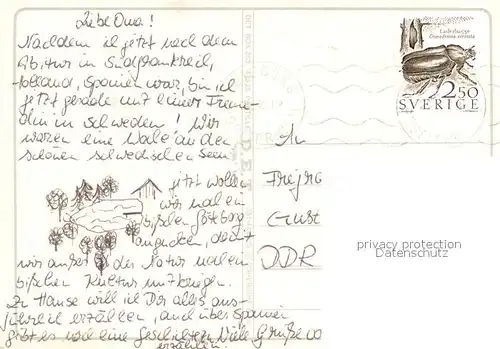 Liebe Oma!
Nachdem ich jetzt nach dem
Abitur in Südfrankreich,
Holland, Spanien war, bin ich
jetzt gerade mit einer Freun-
din in Schweden! Wir
waren eine Woche an den
schönen schwedischen Seen
jetzt wollen
wir mal ein
bißchen Göteborg
angucken, damit
wir außer der Natur mal ein
bißchen Kultur mitkriegen.
Zu Hause will ich Dir alles aus-
führlich erzählen, auch über Spanien
gibt es noch eine Geschichte Viele Grüße
erzählen!
Läderbagge
Osmoderma eremita
2.50
SVERIGE
An
DDR
privacy protection
VM images